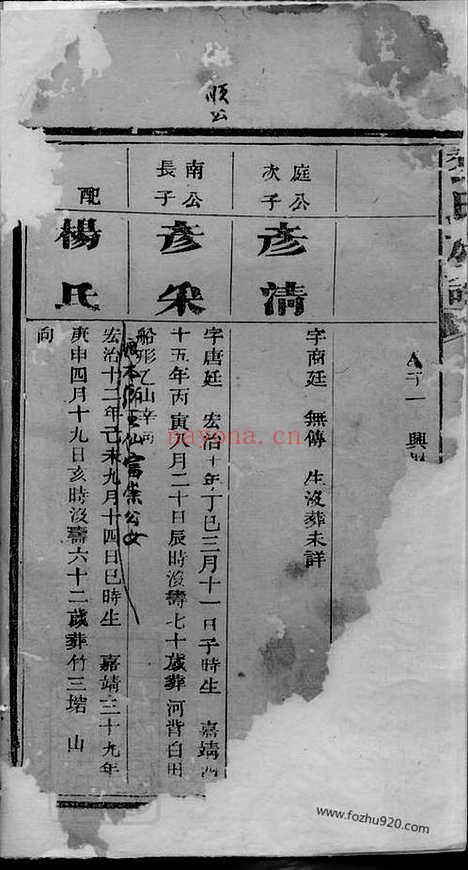 順公
庭公
次子
彥清
字商廷 無傳 生沒葬未詳
南公
長子
彥采
字唐廷 宏治十年丁巳三月十一日子時生 嘉靖
十五年丙寅八月二十日辰時沒壽七十歲葬河背白田
船形乙山辛向
配
楊氏
富崇公女
宏治十二年己未九月十四日巳時生 嘉靖三十九年
庚申四月十九日亥時沒壽六十二歲葬竹三塔 山
向
nayona.cn
www.fozhu920.com